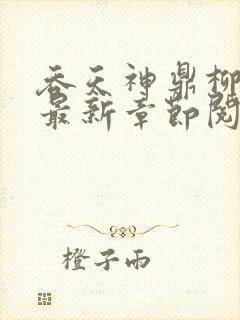 吞天神鼎柳
最新章节阅
橙子雨